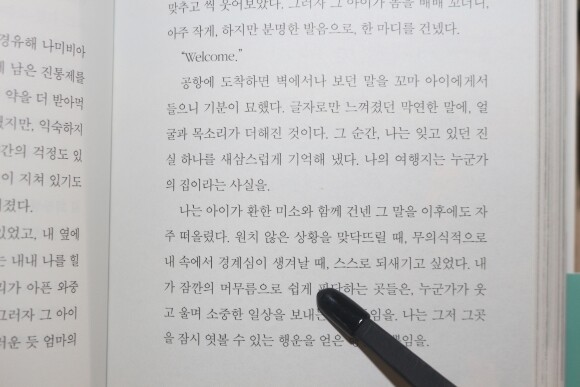 경유해 나미비아
남은 진통제를
약을 더 받아먹
익숙하지
간의 걱정도 있
이 지쳐 있기도
졌다.
있었고, 내 옆에
는 내내 나를 힘
리가 아픈 와중
그러자 그 아이
러운 듯 엄마의
맞추고 씩 웃어보았다. 그러자 그 아이가 몸을 배배 꼬더니,
아주 작게, 하지만 분명한 발음으로, 한 마디를 건넸다.
“Welcome.”
공항에 도착하면 벽에서나 보던 말을 꼬마 아이에게서
들으니 기분이 묘했다. 글자로만 느껴졌던 막연한 말에, 얼
굴과 목소리가 더해진 것이다. 그 순간, 나는 잊고 있던 진
실 하나를 새삼스럽게 기억해 냈다. 나의 여행지는 누군가
의 집이라는 사실을.
나는 아이가 환한 미소와 함께 건넨 그 말을 이후에도 자
주 떠올렸다. 원치 않은 상황을 맞닥뜨릴 때, 무의식적으로
내 속에서 경계심이 생겨날 때, 스스로 되새기고 싶었다. 내
가 잠깐의 머무름으로 쉽게 판단하는 곳들은, 누군가가 웃
고 울며 소중한 일상을 보내는 나는 그저 그곳
을 잠시 엿볼 수 있는 행운을 얻은